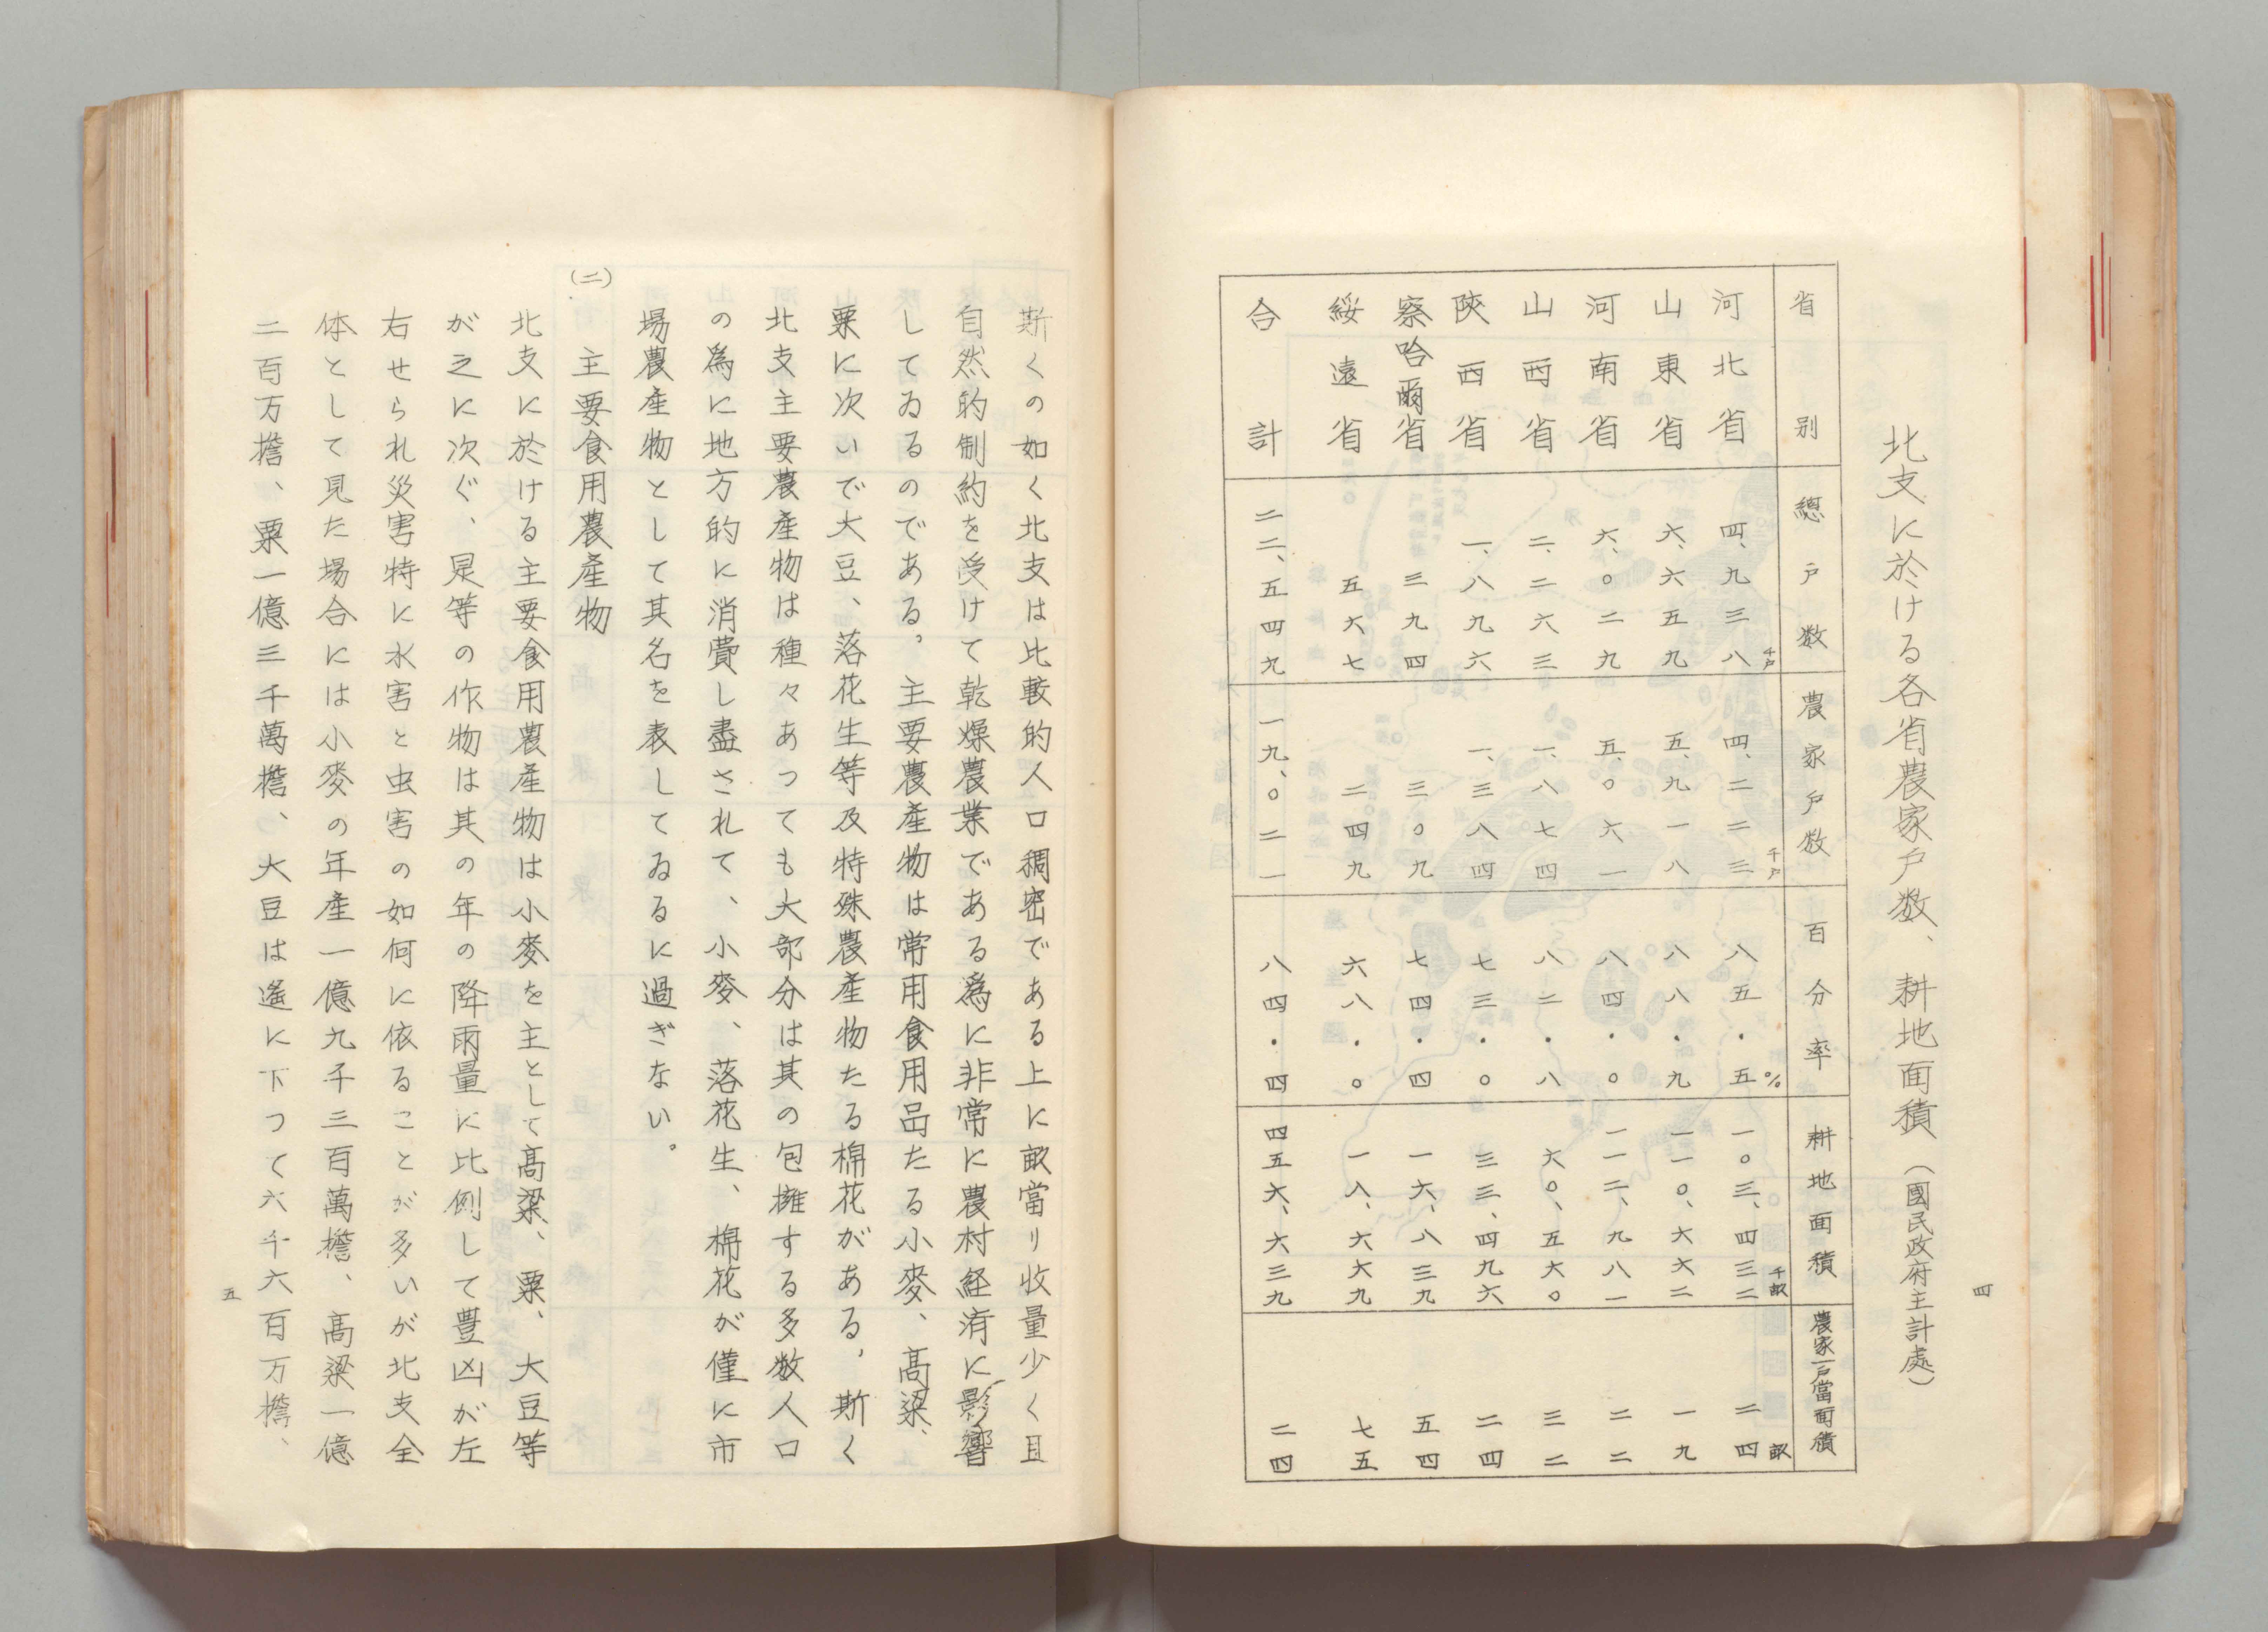 四
北支に於ける各省農家戸数、耕地面積（國民政府主計處）
省別 總戸数 農家戸数 百分率 耕地面積 農家一戸當面積
河北省 四、九三八千戸 四、二二三千戸 八五・五% 一〇三、四三二千畝 二四畝
山東省 六、六五九 五、九一八 八八・九 一一〇、六六二 一九
河南省 六、〇二九 五、〇六一 八四・〇 一一二、九八一 二二
山西省 二、二六三 一、八七四 八二・八 六〇、五六〇 三二
陝西省 一、八九六 一、三八四 七三・〇 三三、四九六 二四
察哈爾省 三九四 三〇九 七四・四 一六、八三九 五四
綏遠省 五六七 二四九 六八・〇 一八、六六九 七五
合計 二二、五四九 一九、〇二一 八四・四 四五六、六三九 二四
斯くの如く北支は比較的人口稠密である上に畝當り收量少く且
自然的制約を受けて乾燥農業である爲に非常に農村経済に影響
してゐるのである。主要農產物は常用食用品たる小麥、高粱、
粟に次いで大豆、落花生等及特殊農産物たる棉花がある，斯く
北支主要農產物は種々あっても大部分は其の包擁する多数人口
の爲に地方的に消費し盡されて、小麥、落花生、棉花が僅に市
場農産物として其名を表してゐるに過ぎない。
(二) 主要食用農產物
北支に於ける主要食用農產物は小麥を主として高粱、粟、大豆等
が之に次ぐ、是等の作物は其の年の降雨量に比例して豊凶が左
右せられ災害特に水害と虫害の如何に依ることが多いが北支全
体として見た場合には小麥の年産一億九千三百萬擔、高粱一億
二百万擔、粟一億三千萬擔、大豆は遙に下つて六千六百万擔、
五